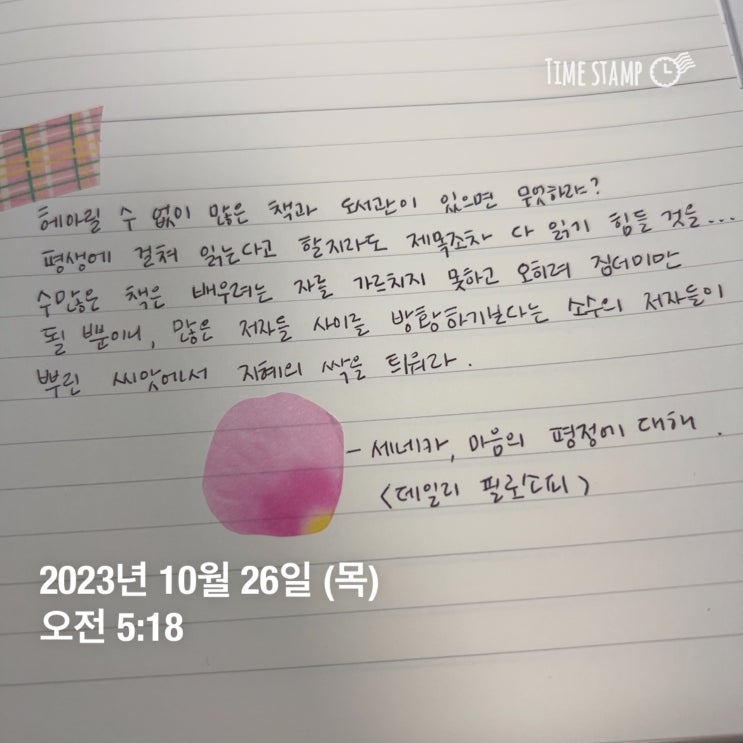 TIME STAMP
헤아릴 수 없이 많은 책과 도서관이 있으면 무엇하랴?
평생에 걸쳐 읽는다고 할지라도 제목조차 다 읽기 힘들 것을...
수많은 책은 배우려는 자를 가르치지 못하고 오히려 짐더미만
될 뿐이니, 많은 저자들 사이를 방황하기보다는 소수의 저자들이
뿌린 씨앗에서 지혜의 싹을 틔워라.
- 세네카, 마음의 평정에 대해.
<데일리 필로소피>
2023년 10월 26일 (목)
오전 5:18